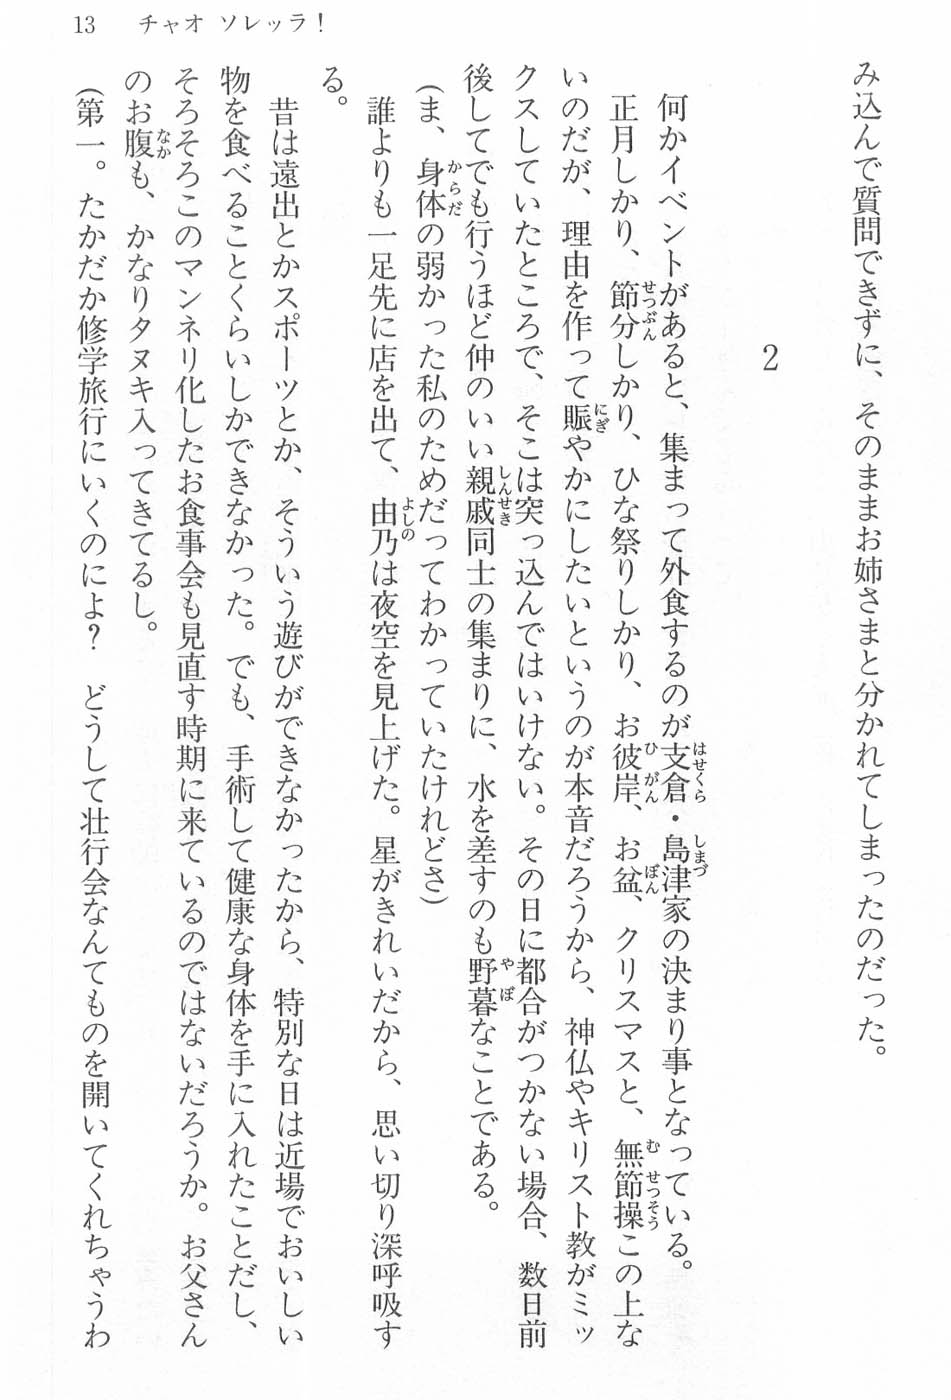 13　チャオ ソレッラ！
み込んで質問できずに、そのままお姉さまと分かれてしまったのだった。
2
何かイベントがあると、集まって外食するのが支倉・島津家の決まり事となっている。
正月しかり、節分しかり、ひな祭りしかり、お彼岸、お盆、クリスマスと、無節操この上な
いのだが、理由を作って賑やかにしたいというのが本音だろうから、神仏やキリスト教がミッ
クスしていたところで、そこは突っ込んではいけない。その日に都合がつかない場合、数日前
後してでも行うほど仲のいい親戚同士の集まりに、水を差すのも野暮なことである。
（ま、身体の弱かった私のためだってわかっていたけれどさ）
誰よりも一足先に店を出て、由乃は夜空を見上げた。星がきれいだから、思い切り深呼吸す
る。
昔は遠出とかスポーツとか、そういう遊びができなかったから、特別な日は近場でおいしい
物を食べることくらいしかできなかった。でも、手術して健康な身体を手に入れたことだし、
そろそろこのマンネリ化したお食事会も見直す時期に来ているのではないだろうか。お父さん
のお腹も、かなりタヌキ入ってきてるし。
（第一。たかだか修学旅行にいくのによ？　どうして壮行会なんてものを開いてくれちゃうわ